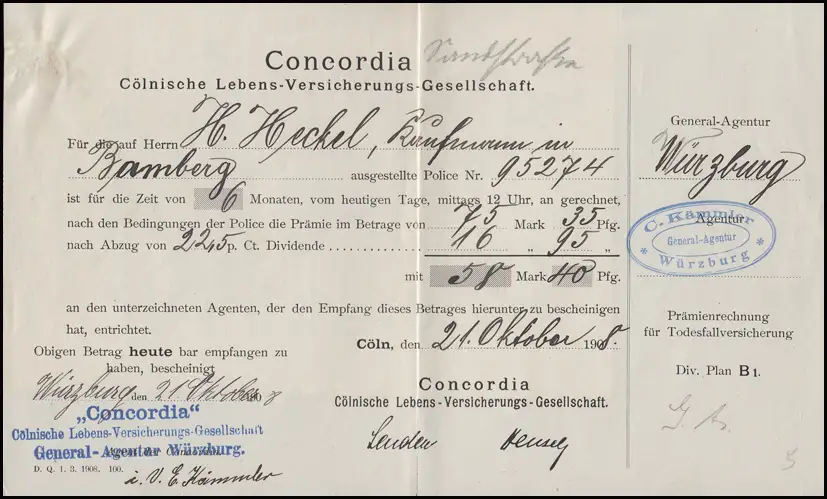 Concordia Sandstraße
Cölnische Lebens-Versicherungs-Gesellschaft.
Für die auf Herrn H. Heckel, Kaufmann in
Bamberg ausgestellte Police Nr. 95274
ist für die Zeit von 6 Monaten, vom heutigen Tage, mittags 12 Uhr, an gerechnet,
nach den Bedingungen der Police die Prämie im Betrage von 75 Mark 35 Pfg.
nach Abzug von 22,5 p. Ct. Dividende 16 „ 95 „
mit 58 Mark 40 Pfg.
an den unterzeichneten Agenten, der den Empfang dieses Betrages hierunter zu bescheinigen
hat, entrichtet.
Cöln, den 21. Oktober 1908.
Obigen Betrag heute bar empfangen zu
haben, bescheinigt
Würzburg den 21 Oktober 1908
„Concordia“
Cölnische Lebens-Versicherungs-Gesellschaft
General-Agentur Würzburg.
D. Q. 1. 3. 1908. 100.
i. V. E. Kämmler
Concordia
Cölnische Lebens-Versicherungs-Gesellschaft.
General-Agentur
Würzburg
Agentur
C. Kämmler
General-Agentur
* Würzburg *
Prämienrechnung
für Todesfallversicherung
Div. Plan B1.